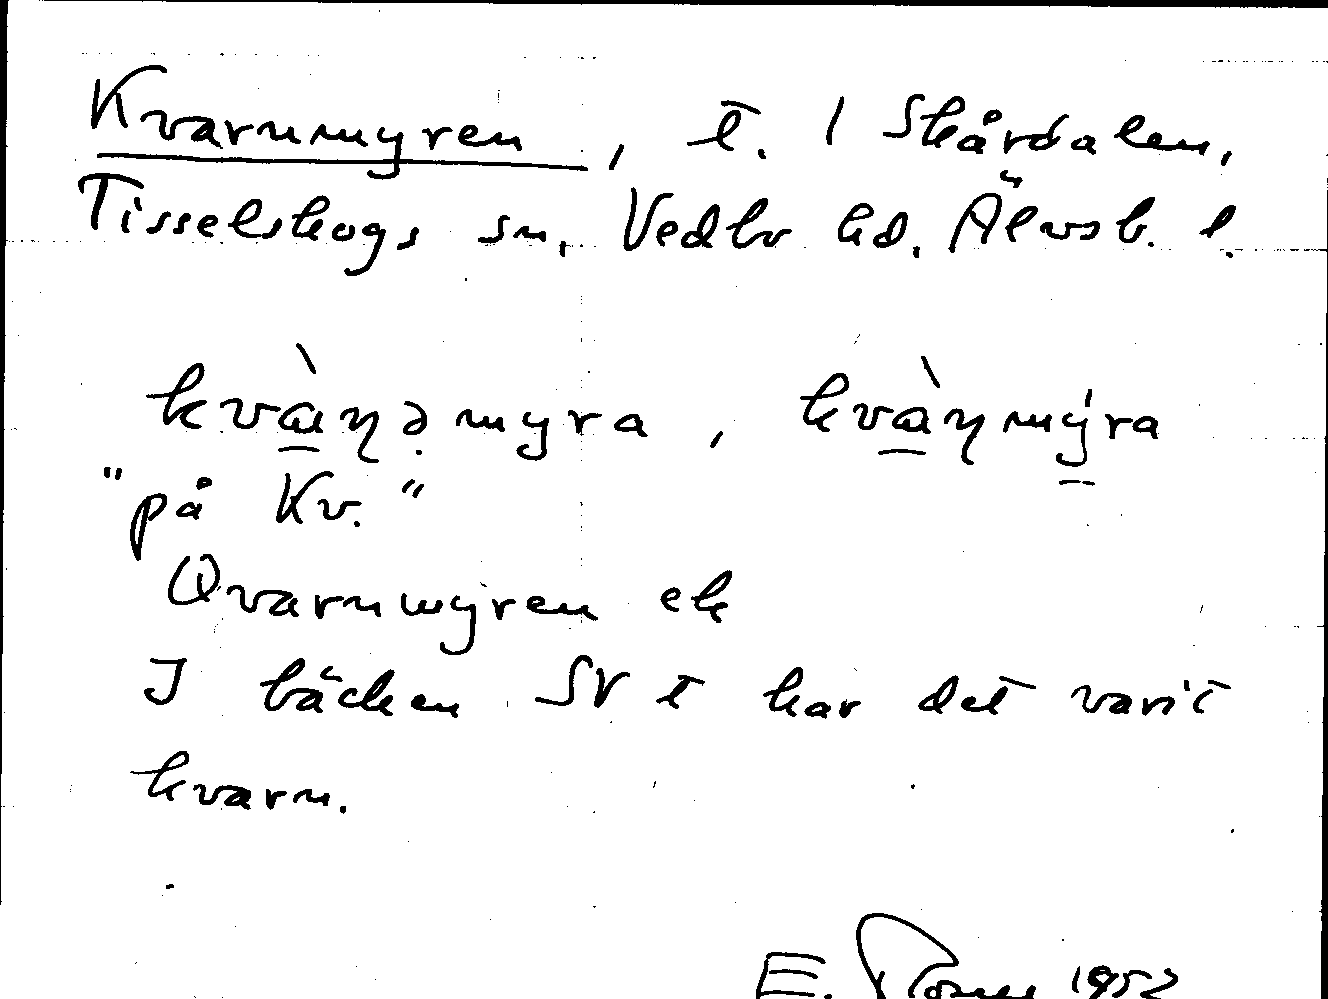 Kvarnmyren, t. / Skårdalen,
Tisselskogs sn, Vedbo hd. Älvsb. l.
kvàɳəmyra, kvàɳmýra
"på Kv."
Qvarnmyren ek
I bäcken SV t har det varit
kvarn.
E. 1952